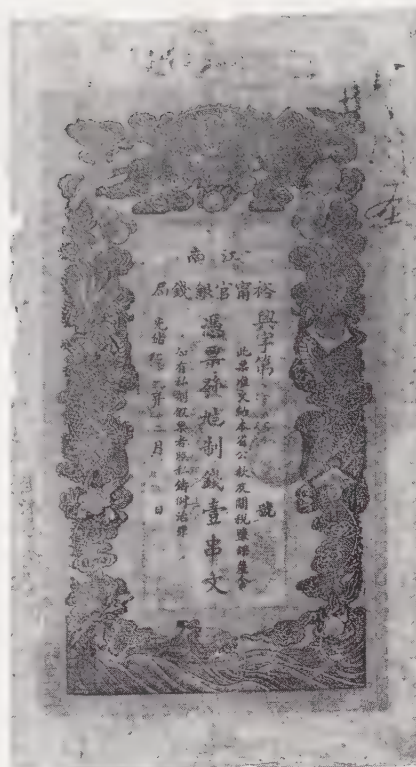 江南
裕甯官銀錢局
興字第
號
此票准完納本省公款及關稅鹽課釐金
憑票發足制錢壹串文
如有私刻假票者照私鑄例治罪
光緒
年十二月
日